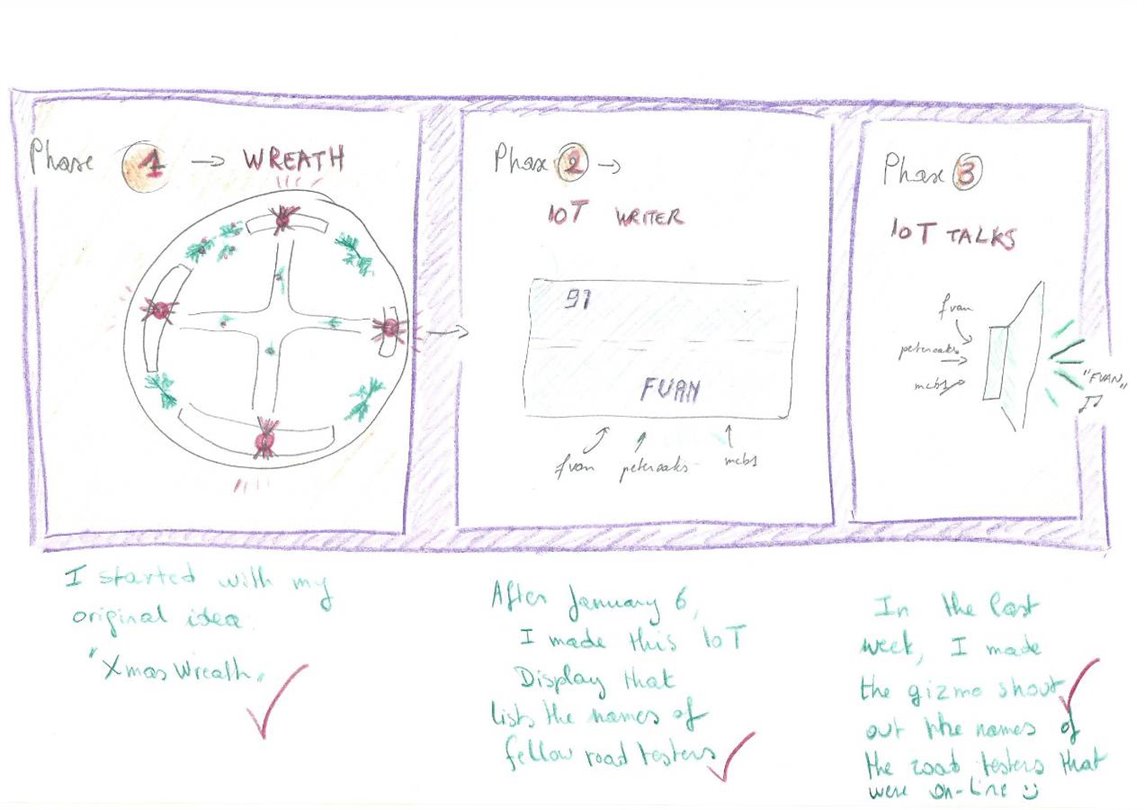 Phase 1 → WREATH
Phase 2 →
IOT WRITER
91
FVAN
fvan peteroaks mcbs
Phase 3
IOT TALKS
fvan
peteroaks
mcbs
"FVAN"
I started with my
original idea.
"Xmas Wreath"
After January 6,
I made this IoT
Display that
lists the names of
fellow road testers
In the last
week, I made
the gizmo shout
out the names of
the road testers that
were on-line